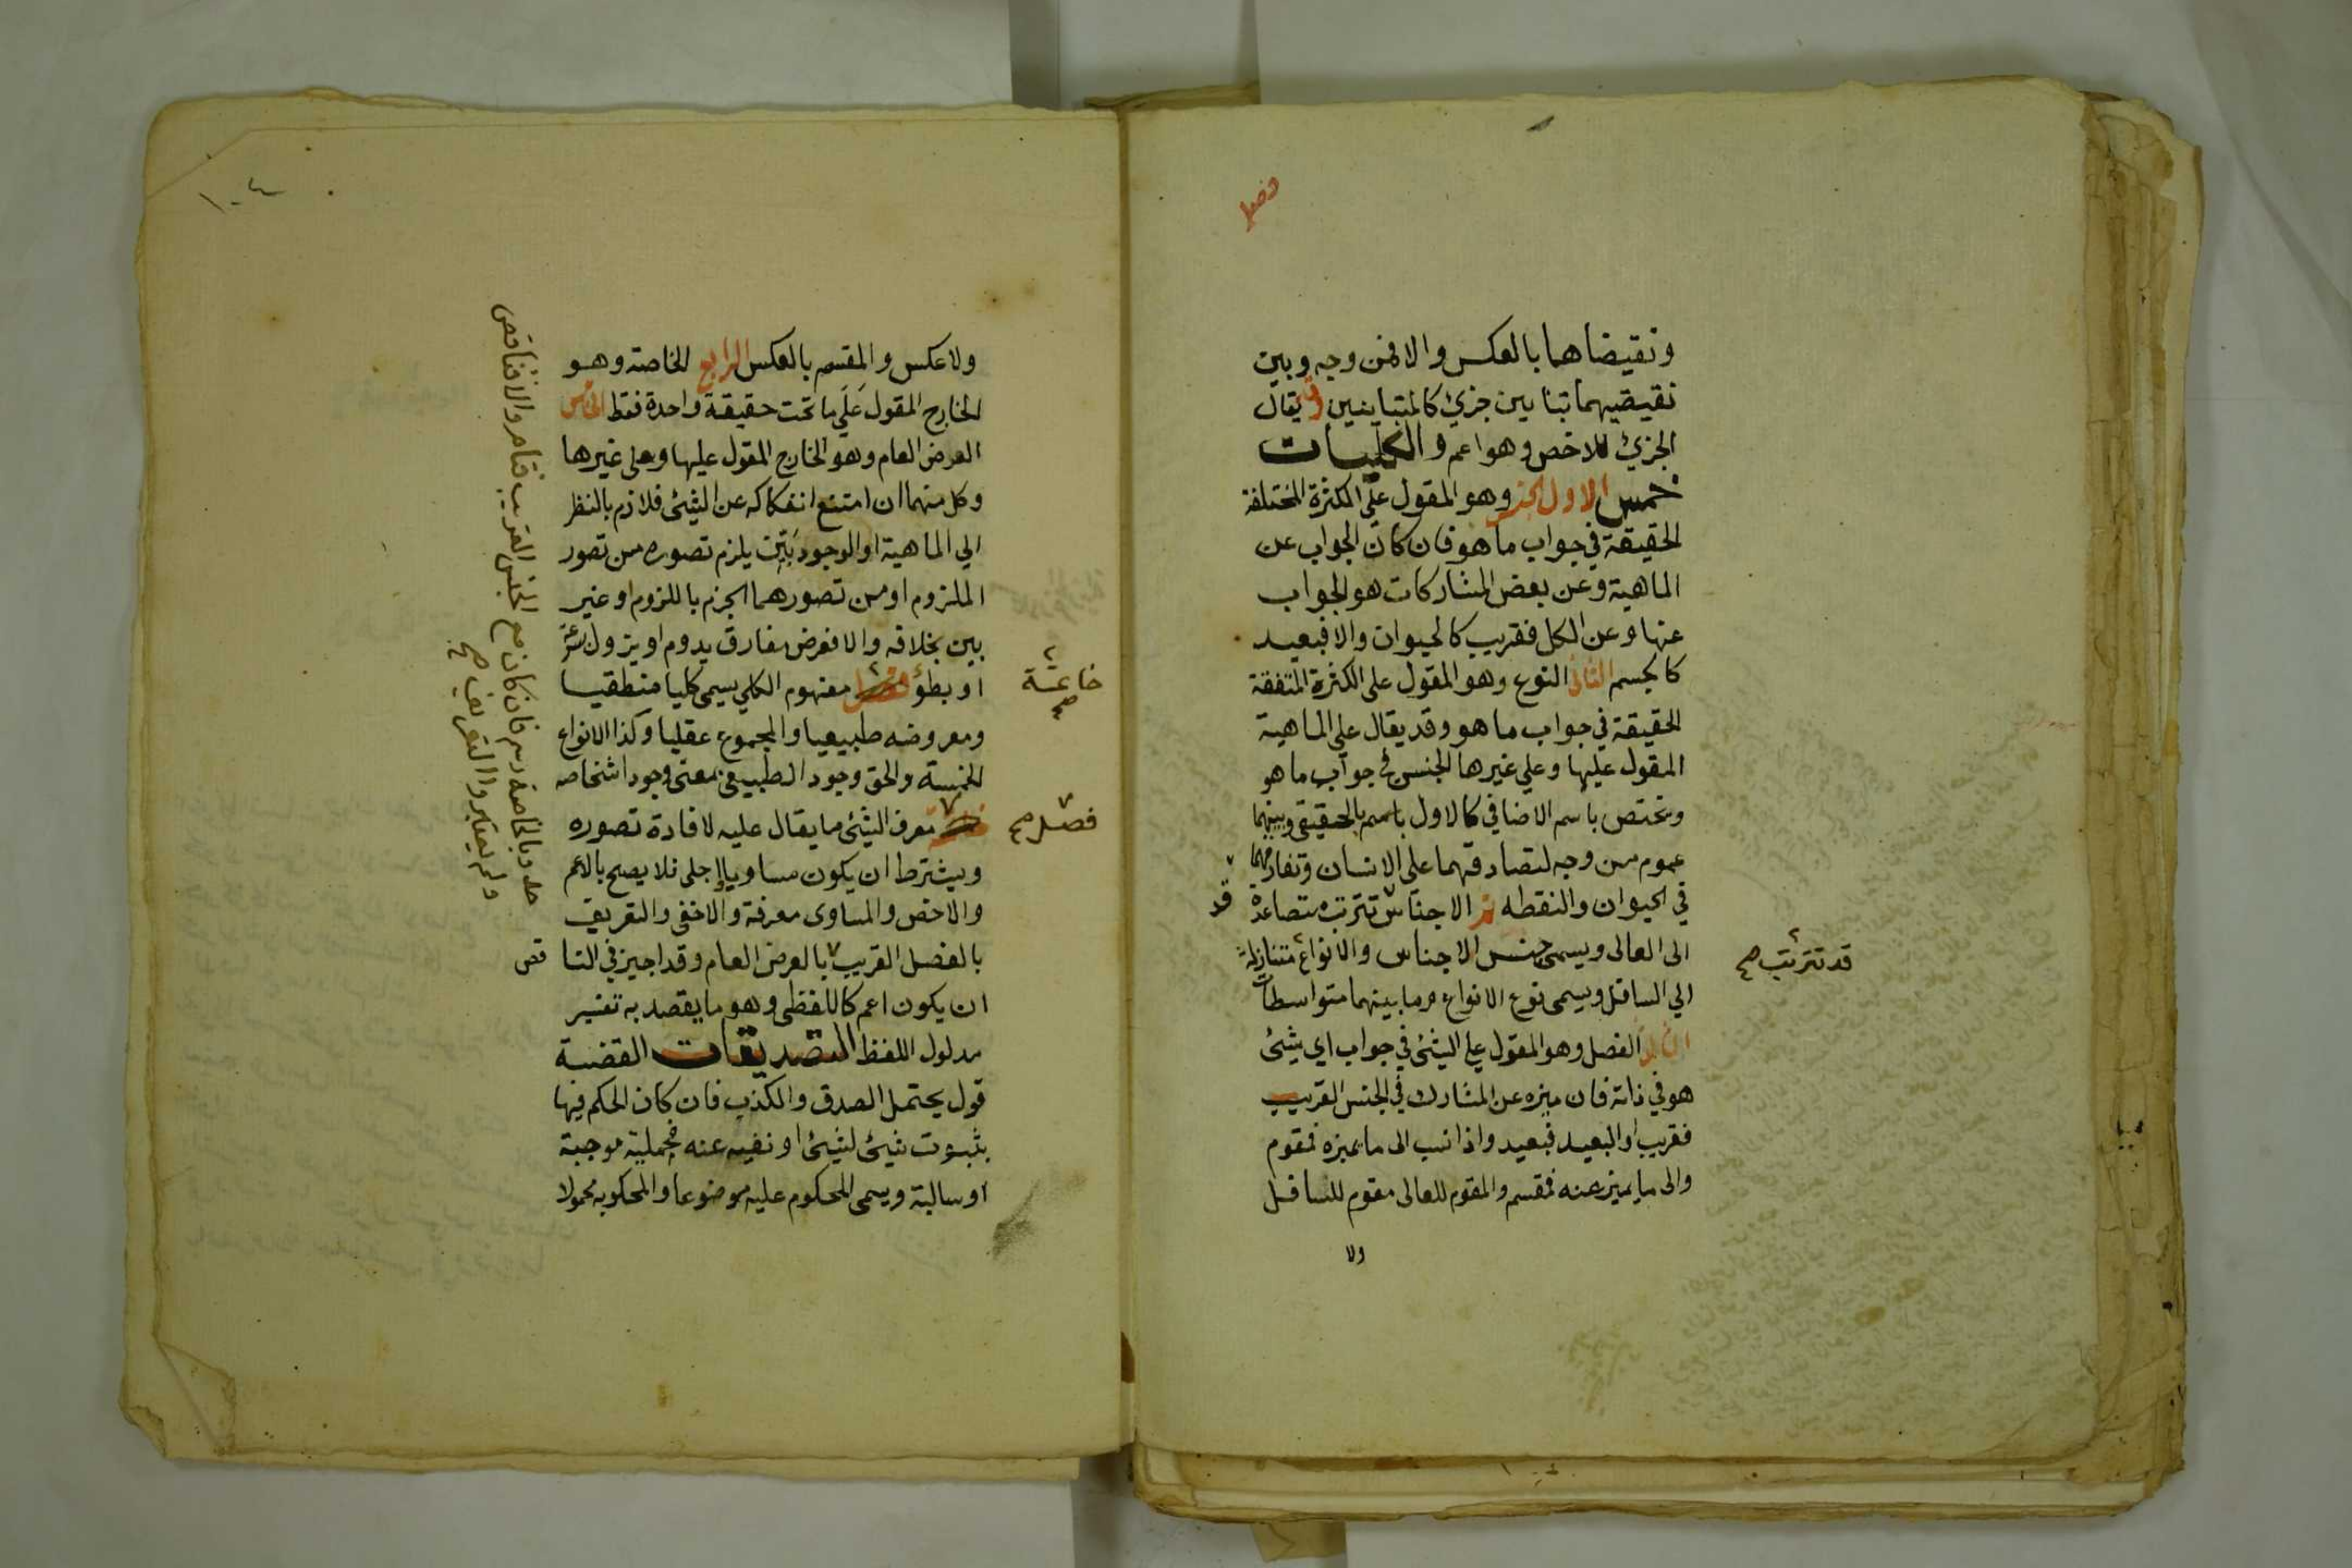 ونقيضاهما بالعكس والا فمن وجه وبين
نقيضيهما تباين جزئ كالمتباينين وقد يقال
الجزئ للاخص وهو اعم والكليات
خمس الاول الجنس وهو المقول علي الكثرة المختلفة
الحقيقة في جواب ما هو فان كان الجواب عن
الماهية وعن بعض المشاركات هو الجواب
عنها وعن الكل فقريب كالحيوان والا فبعيد
كالجسم الثاني النوع وهو المقول على الكثرة المتفقة
الحقيقة في جواب ما هو وقد يقال علي الماهية
المقول عليها وعلي غيرها الجنس في جواب ما هو
وتختص باسم الاضافي كالاول باسم بالحقيقي وبينهما
عموم من وجه لتصادقهما على الانسان وتفارقهما
في الحيوان والنقطه ثم الاجناس تترتب متصاعدة
الى العالى ويسمى جنس الاجناس والانواع متنازلة
الي السافل ويسمى نوع الانواع وما بينهما متواسطات
الثالث الفصل وهو المقول علي الشئ في جواب اي شئ
هو في ذاته فان ميزه عن المشارك في الجنس القريب
فقريب او البعيد فبعيد واذا نسب الى ما يميزه فمقوم
والى ما يميز عنه فمقسم والمقوم للعالى مقوم للسافل
ولا
قد
قد تترتب صح
ولا عكس والمقسم بالعكس الرابع الخاصة وهو
الخارج المقول علي ما تحت حقيقة واحدة فقط الخامس
العرض العام وهو الخارج المقول عليها وعلى غيرها
وكل منهما ان امتنع انفكاكه عن الشئ فلازم بالنظر
الي الماهية او الوجود بين يلزم تصوره من تصور
الملزوم او من تصورهما الجزم باللزوم او غير
بين بخلافه والا فعرض مفارق يدوم او يزول بسرعة
او بطؤ مفهوم الكلي يسمى كليا منطقيا
ومعروضه طبيعيا والمجموع عقليا وكذا الانواع
الخمسة والحق وجود الطبيعي بمعنى وجود اشخاصه
معرف الشئ ما يقال عليه لافادة تصوره
ويشترط ان يكون مساويا اجلى فلا يصح بالاعم
والاخص والمساوى معرفة والاخفى والتعريف
بالفصل القريب بالعرض العام وقد اجيز في النا
قص
ان يكون اعم كاللفظى وهو ما يقصد به تفسير
مدلول اللفظ التصديقات القضية
قول يحتمل الصدق والكذب فان كان الحكم فيها
بثبوت شئ لشئ او نفيه عنه فحملية موجبة
او سالبة ويسمى المحكوم عليه موضوعا والمحكوم به محمولا
خاتمة صح
فصل صح
حد وبالخاصة رسم فان كان مع الجنس القريب فتام والا فناقص
ولم يعتبروا التعريف صح
١٠٤